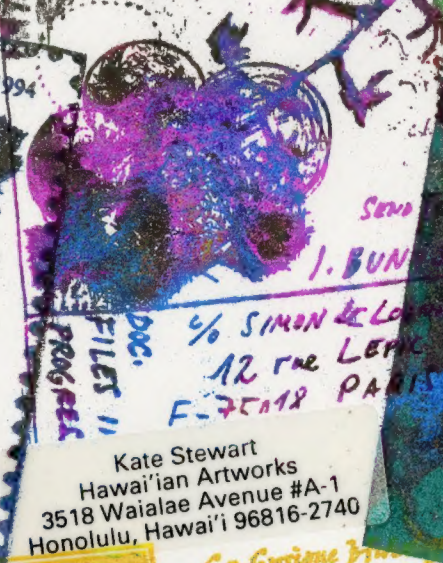 994
SEND
I. BUN
c/o SIMON
12 rue LEPIC
F-75018 PARIS
DOC.
FILES
PROGRES
Kate Stewart
Hawai'ian Artworks
3518 Waialae Avenue #A-1
Honolulu, Hawai'i 96816-2740